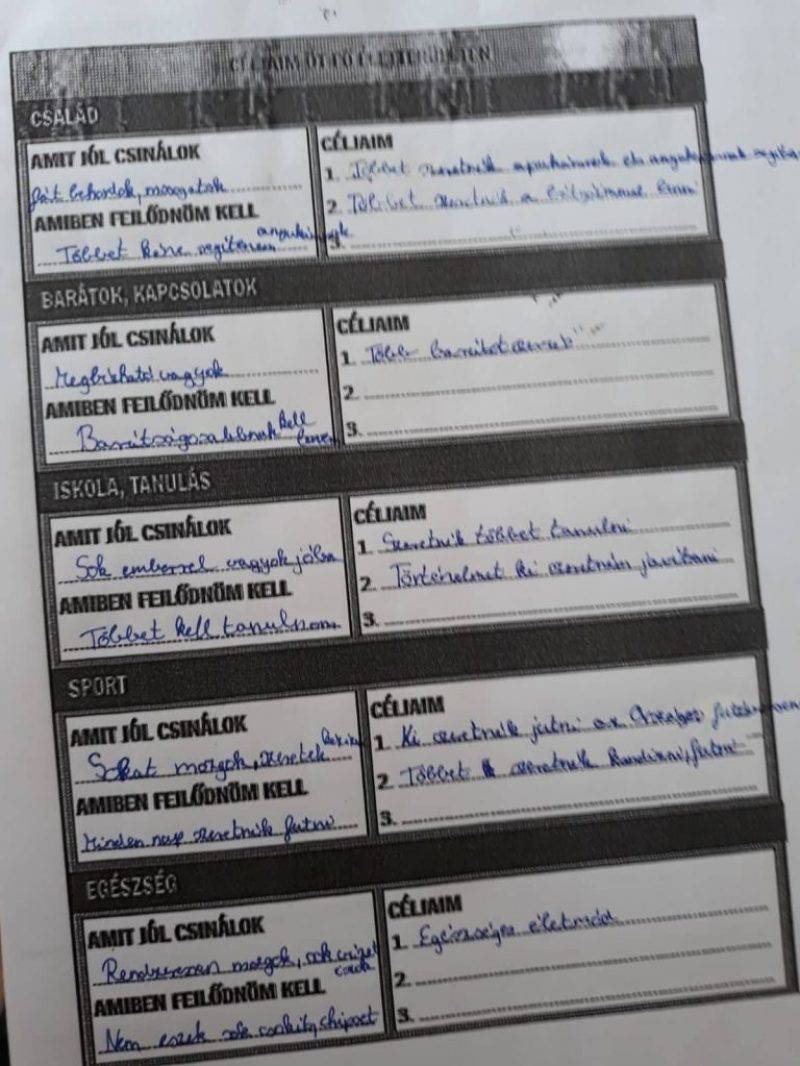 CÉLJAIM ÖT FŐ ÉLETTERÜLETEN
CSALÁD
AMIT JÓL CSINÁLOK
fát behordok, mosogatok
AMIBEN FEJLŐDNÖM KELL
Többet kéne segítenem anyukámnak
CÉLJAIM
1. Többet szeretnék apukámnak és anyukámnak
2. Többet szeretnék a lenni
3.
BARÁTOK, KAPCSOLATOK
AMIT JÓL CSINÁLOK
Megbízható vagyok
AMIBEN FEJLŐDNÖM KELL
Barátságosabbnak kell lenem
CÉLJAIM
1. Több barátot
2.
3.
ISKOLA, TANULÁS
AMIT JÓL CSINÁLOK
Sok emberrel vagyok jóba
AMIBEN FEJLŐDNÖM KELL
Többet kell tanulnom
CÉLJAIM
1. Szeretnék többet tanulni
2. Történelmet ki szeretném javítani
3.
SPORT
AMIT JÓL CSINÁLOK
Sokat mozgok, szeretek
AMIBEN FEJLŐDNÖM KELL
Minden nap szeretnék futni
CÉLJAIM
1. Ki szeretnék jutni az Országos
2. Többet szeretnék kondizni, futni
3.
EGÉSZSÉG
AMIT JÓL CSINÁLOK
Rendszeresen mozgok, sok vizet
AMIBEN FEJLŐDNÖM KELL
Nem eszek sok csokit, chipset
CÉLJAIM
1. Egészséges életmód
2.
3.